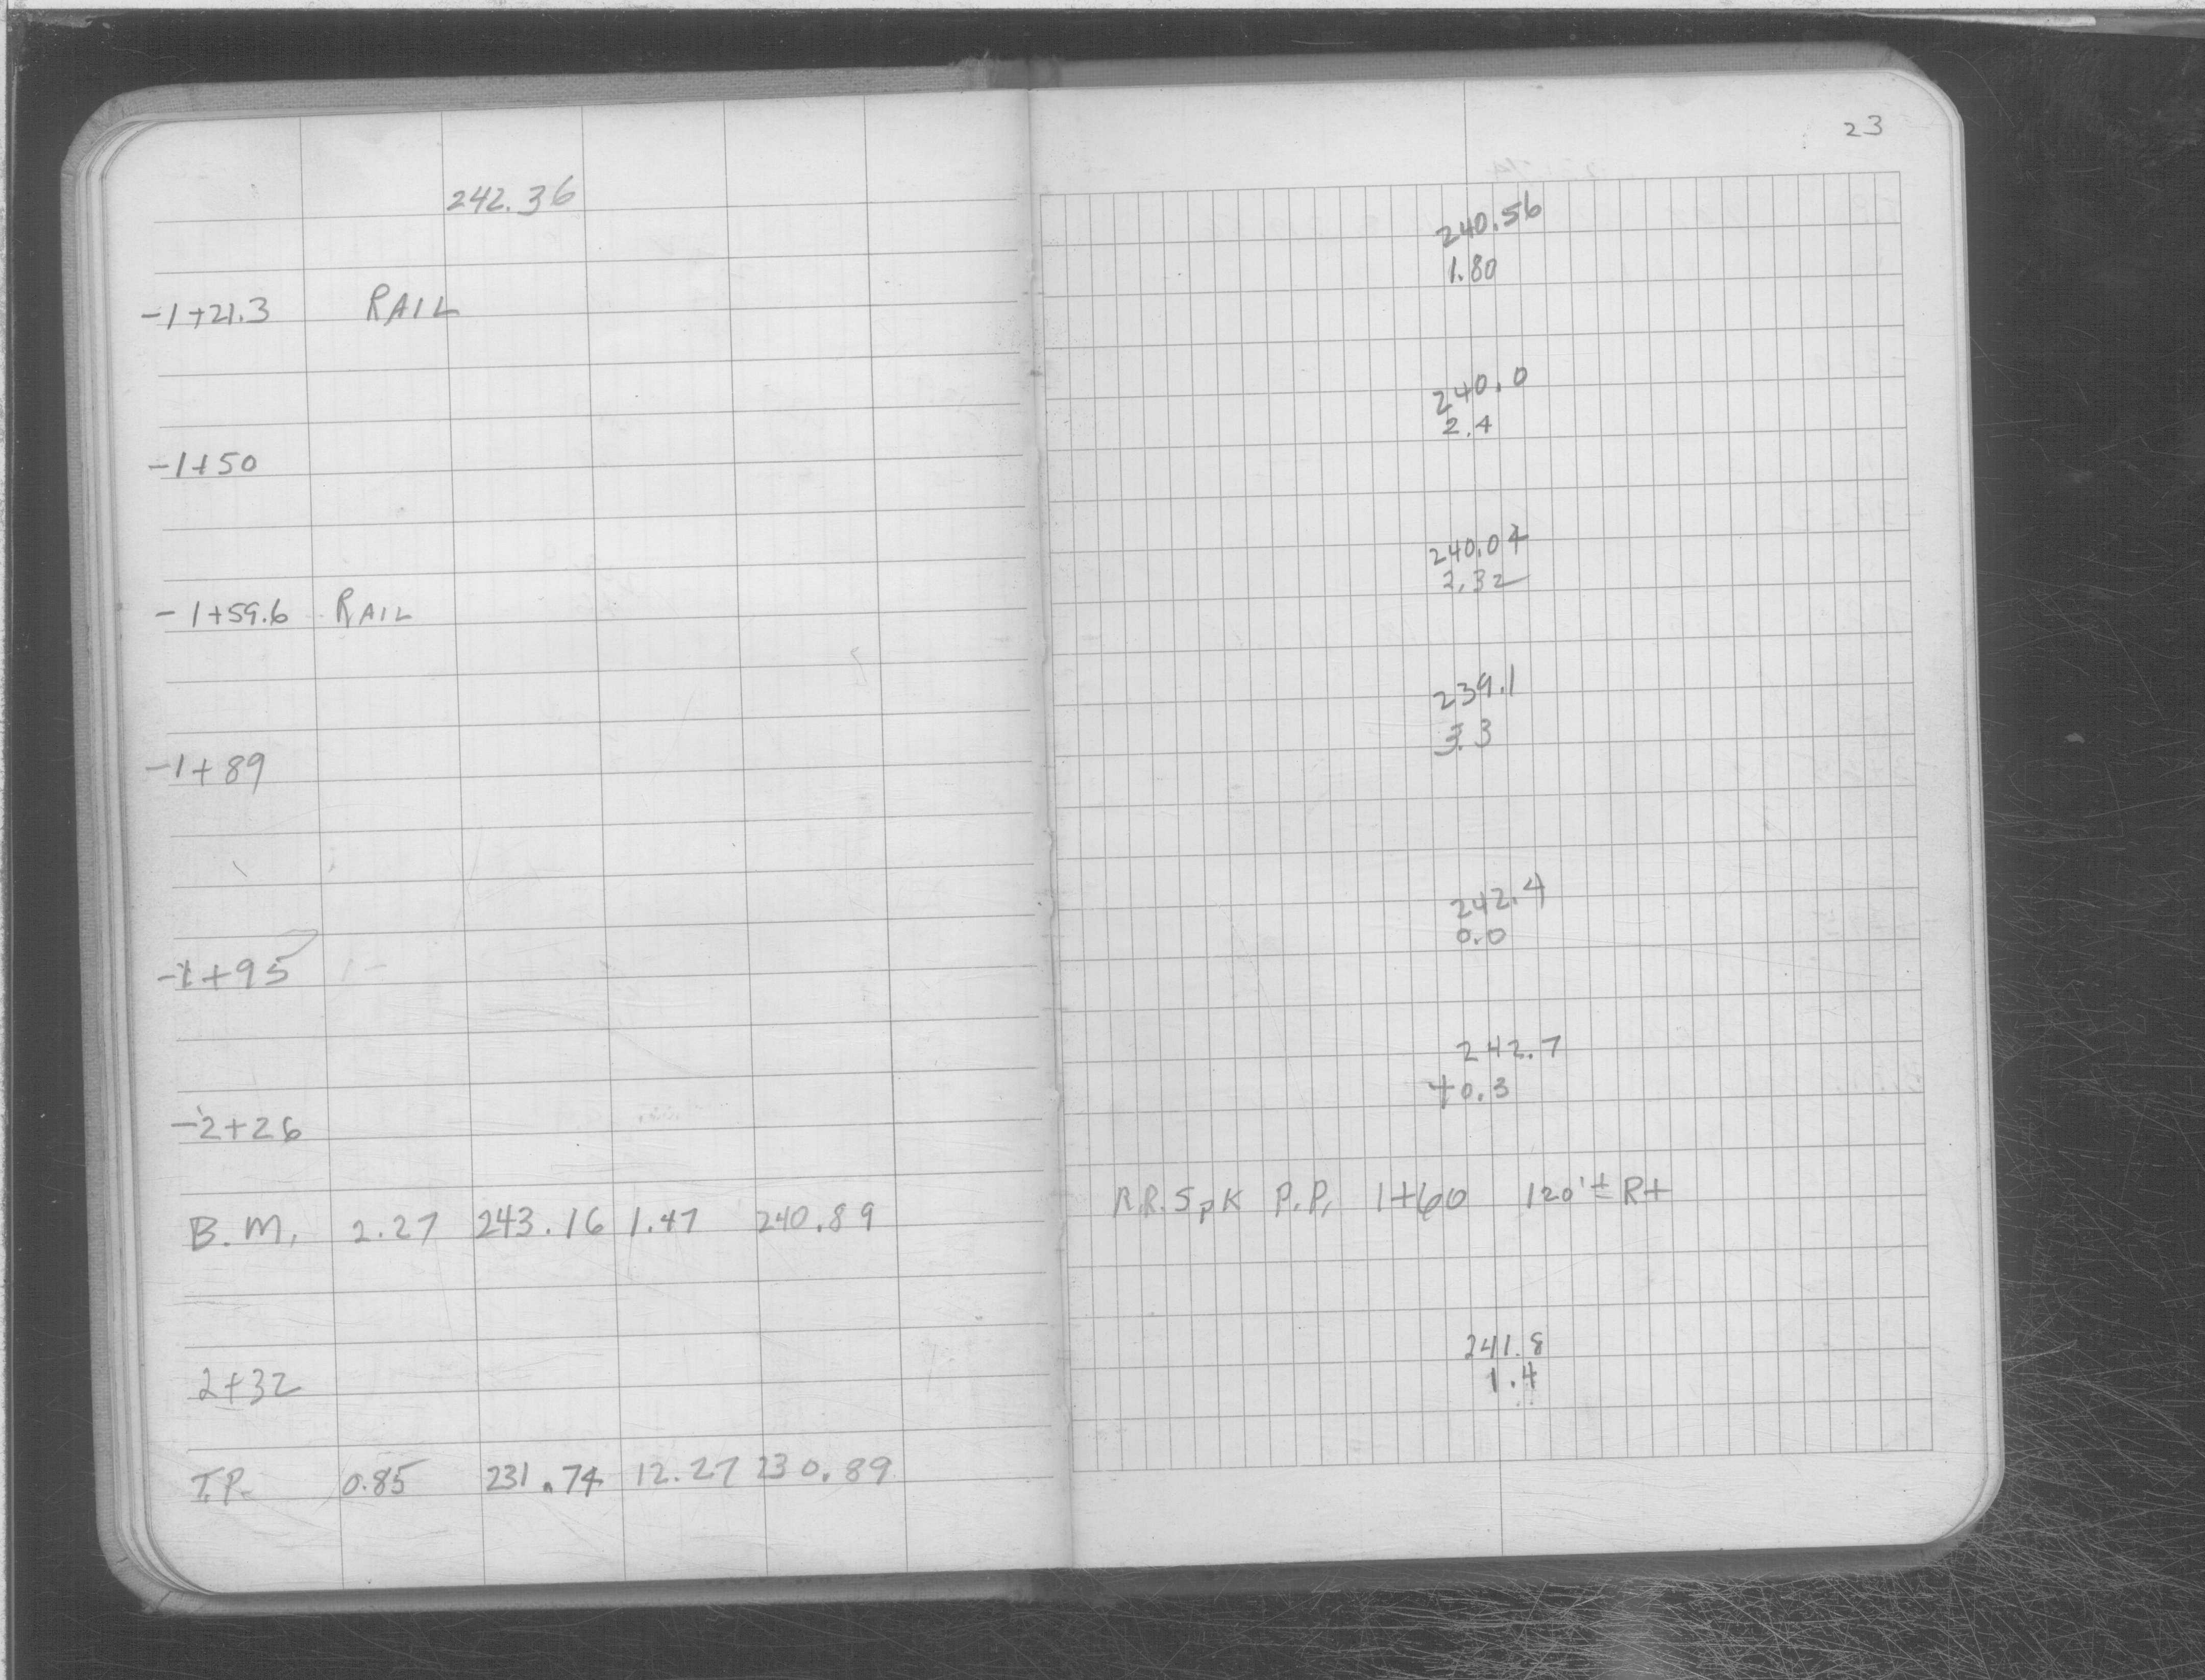 23
242.36
240.56
1.80
-1+21.3 RAIL
240.0
2.4
-1+50
240.04
2.32
-1+59.6 RAIL
239.1
3.3
-1+89
242.4
0.0
-1+95
242.7
+0.3
-2+26
B.M. 2.27 243.16 1.47 240.89 R.R. Spk P.P. 1+60 120'± Rt
241.8
1.4
2+32
T.P. 0.85 231.74 12.27 230.89